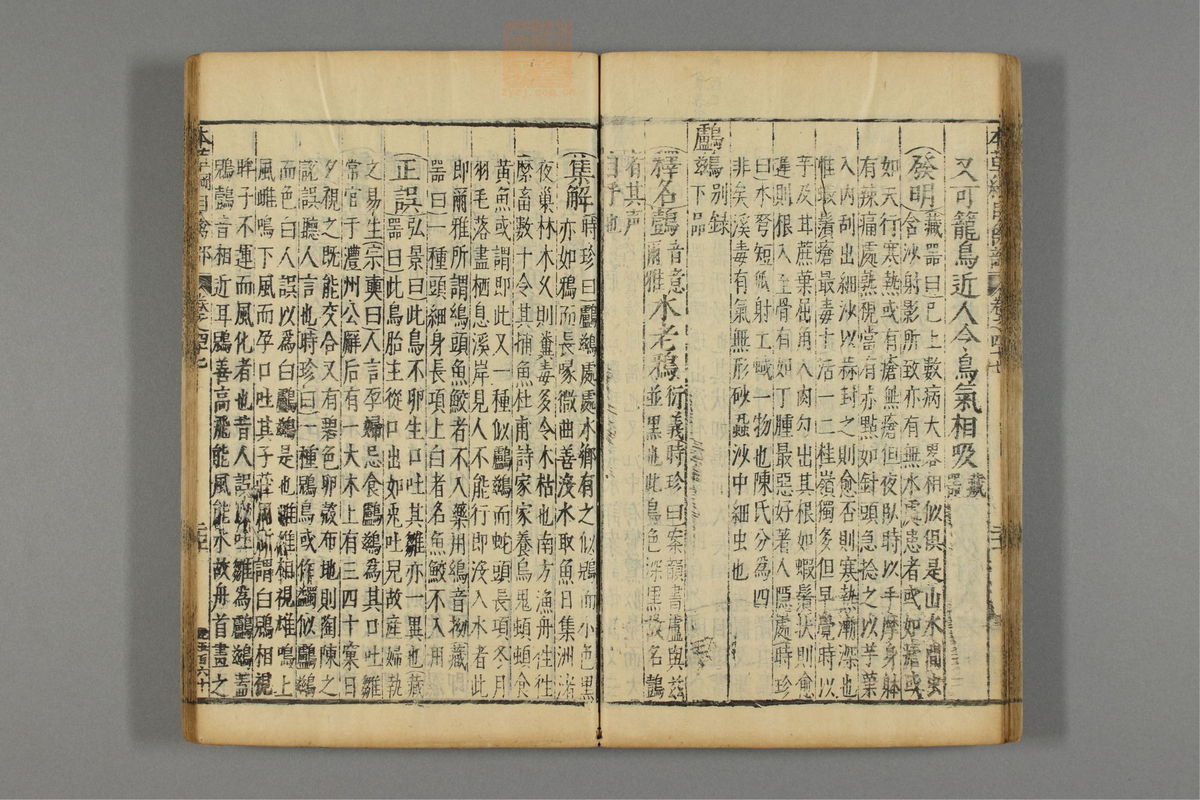 又可籠鳥近人令鳥氣相吸藏器
發明藏器曰已上數病大畧相似俱是山水間虫
含沙射影所致亦有無水處患者或如瘧或
如天行寒熱或有瘡無瘡但夜臥時以手摩身體
有辣痛處熟視當有赤點如針頭急捻之以芋葉
入內刮出細沙以蒜封之則愈否則寒熱漸深也
惟蝦鬚瘡最毒十活一二桂嶺獨多但早覺時以
芋及甘蔗葉屈角入肉勾出其根如蝦鬚狀則愈
遲則根入至骨有如丁腫最惡好著人隱處時珍
曰水弩短狐射工蜮一物也陳氏分為四
非矣溪毒有氣無形砂蝨沙中細虫也
鸕鷀別錄
下品
釋名鷧音意爾雅水老鴉衍義時珍曰案韻書盧與茲
並黑也此鳥色深黑故名鷧
者其声
自呼也
集解時珍曰鸕鷀處處水鄉有之似鶂而小色黑
亦如鴉而長喙微曲善沒水取魚日集洲渚
夜巢林木久則糞毒多令木枯也南方漁舟往往
縻畜數十令其捕魚杜甫詩家家養烏鬼頓頓食
黃魚或謂即此又一種似鸕鷀而蛇頭長項冬月
羽毛落盡栖息溪岸見人不能行即沒入水者此
即爾雅所謂鳭頭魚鮫者不入藥用鳭音拗藏
器曰一種頭細身長項上白者名魚鮫不入用
正誤弘景曰此鳥不卵生口吐其雛亦一異也藏
器曰此鳥胎生從口出如兎吐兒故産婦執
之易生宗奭曰人言孕婦忌食鸕鷀為其口吐雛
嘗官于澧州公廨后有一大木上有三四十窠日
夕視之既能交合又有碧色卵殼布地則陶陳之
說誤聽人言也時珍曰一種鶂鳥或作鷁似鸕鷀
而色白人誤以為白鸕鷀是也雌雄相視雄鳴上
風雌鳴下風而孕口吐其子莊周所謂白鶂相視
眸子不運而風化者也昔人誤以吐雛為鸕鷀蓋
鶂鷧音相近耳鶂善高飛能風能水故舟首畫之
本草綱目禽部 卷之四十七